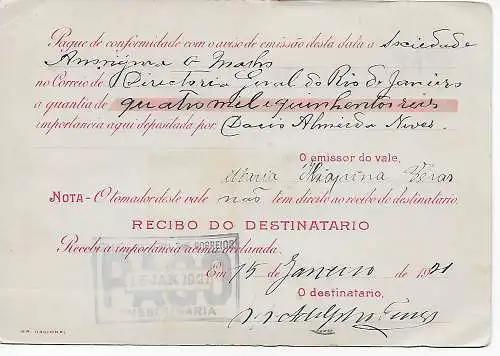 Pague de conformidade com o aviso de emissão desta data a Sociedade
no Correio de Directoria Geral do Rio de Janeiro
a quantia de quatro mil e quinhentos reis
importancia aqui depositada por Dacio Almeida Neves
O emissor do vale,
Maria
NOTA - O tomador deste vale não tem direito ao recibo do destinatario.
RECIBO DO DESTINATARIO
Recebi a importancia acima declarada.
CORREIOS
PAGO
15 JAN 1921
THESOURARIA
Em 15 de Janeiro de 1921
O destinatario,
IMP. NACIONAL